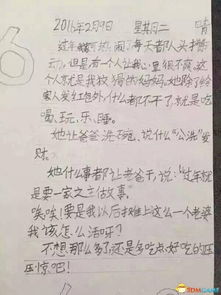 2016年2月9日 星期二 晴
过年啦可热闹了每天都人头挤
动,但是有个人让我心里很不爽,这
个人就是我狡猾的妈妈,她除了给
家人发红包外,什么都不干了,就是吃
喝、玩、乐、睡。
她让爸爸洗碗,说什么"八洗"发
财。
她什么事都让爸爸干,说:"过年就
是要一家之主做事。
唉唉!要是我以后摊上这么一个老婆
我该怎么活呀?
不想那么多了还是多吃点好吃的压
压惊吧!
3DMGAME